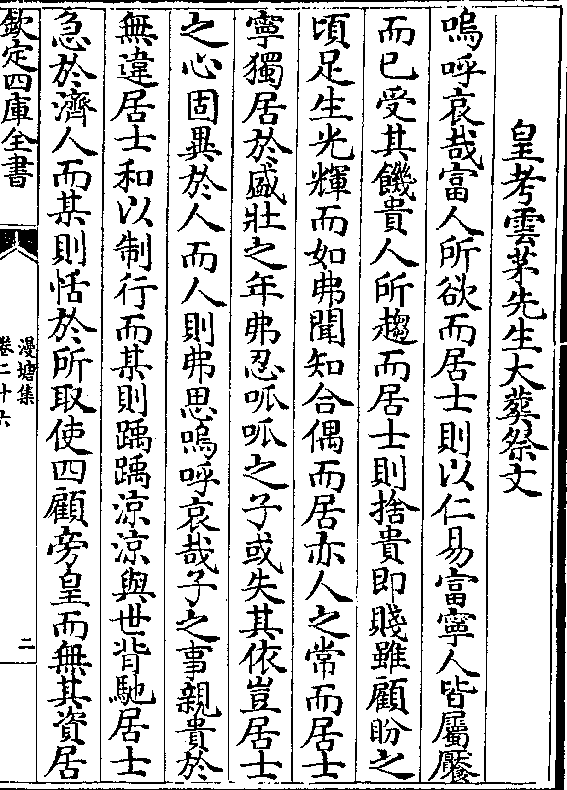 皇考雲茅先生大葬祭文
嗚呼哀哉富人所欲而居士則以仁易富寧人皆屬饜
而已受其饑貴人所趨而居士則捨貴即賤雖顧盼之
頃足生光輝而如弗聞知合偶而居亦人之常而居士
寧獨居於盛壯之年弗忍呱呱之子或失其依豈居士
之心固異於人而人則弗思嗚呼哀哉子之事親貴於
無違居士和以制行而某則踽踽涼涼與世背馳居士
急於濟人而某則恬於所取使四顧旁皇而無其資居
欽定四庫全書
漫塘集
卷二十六
二